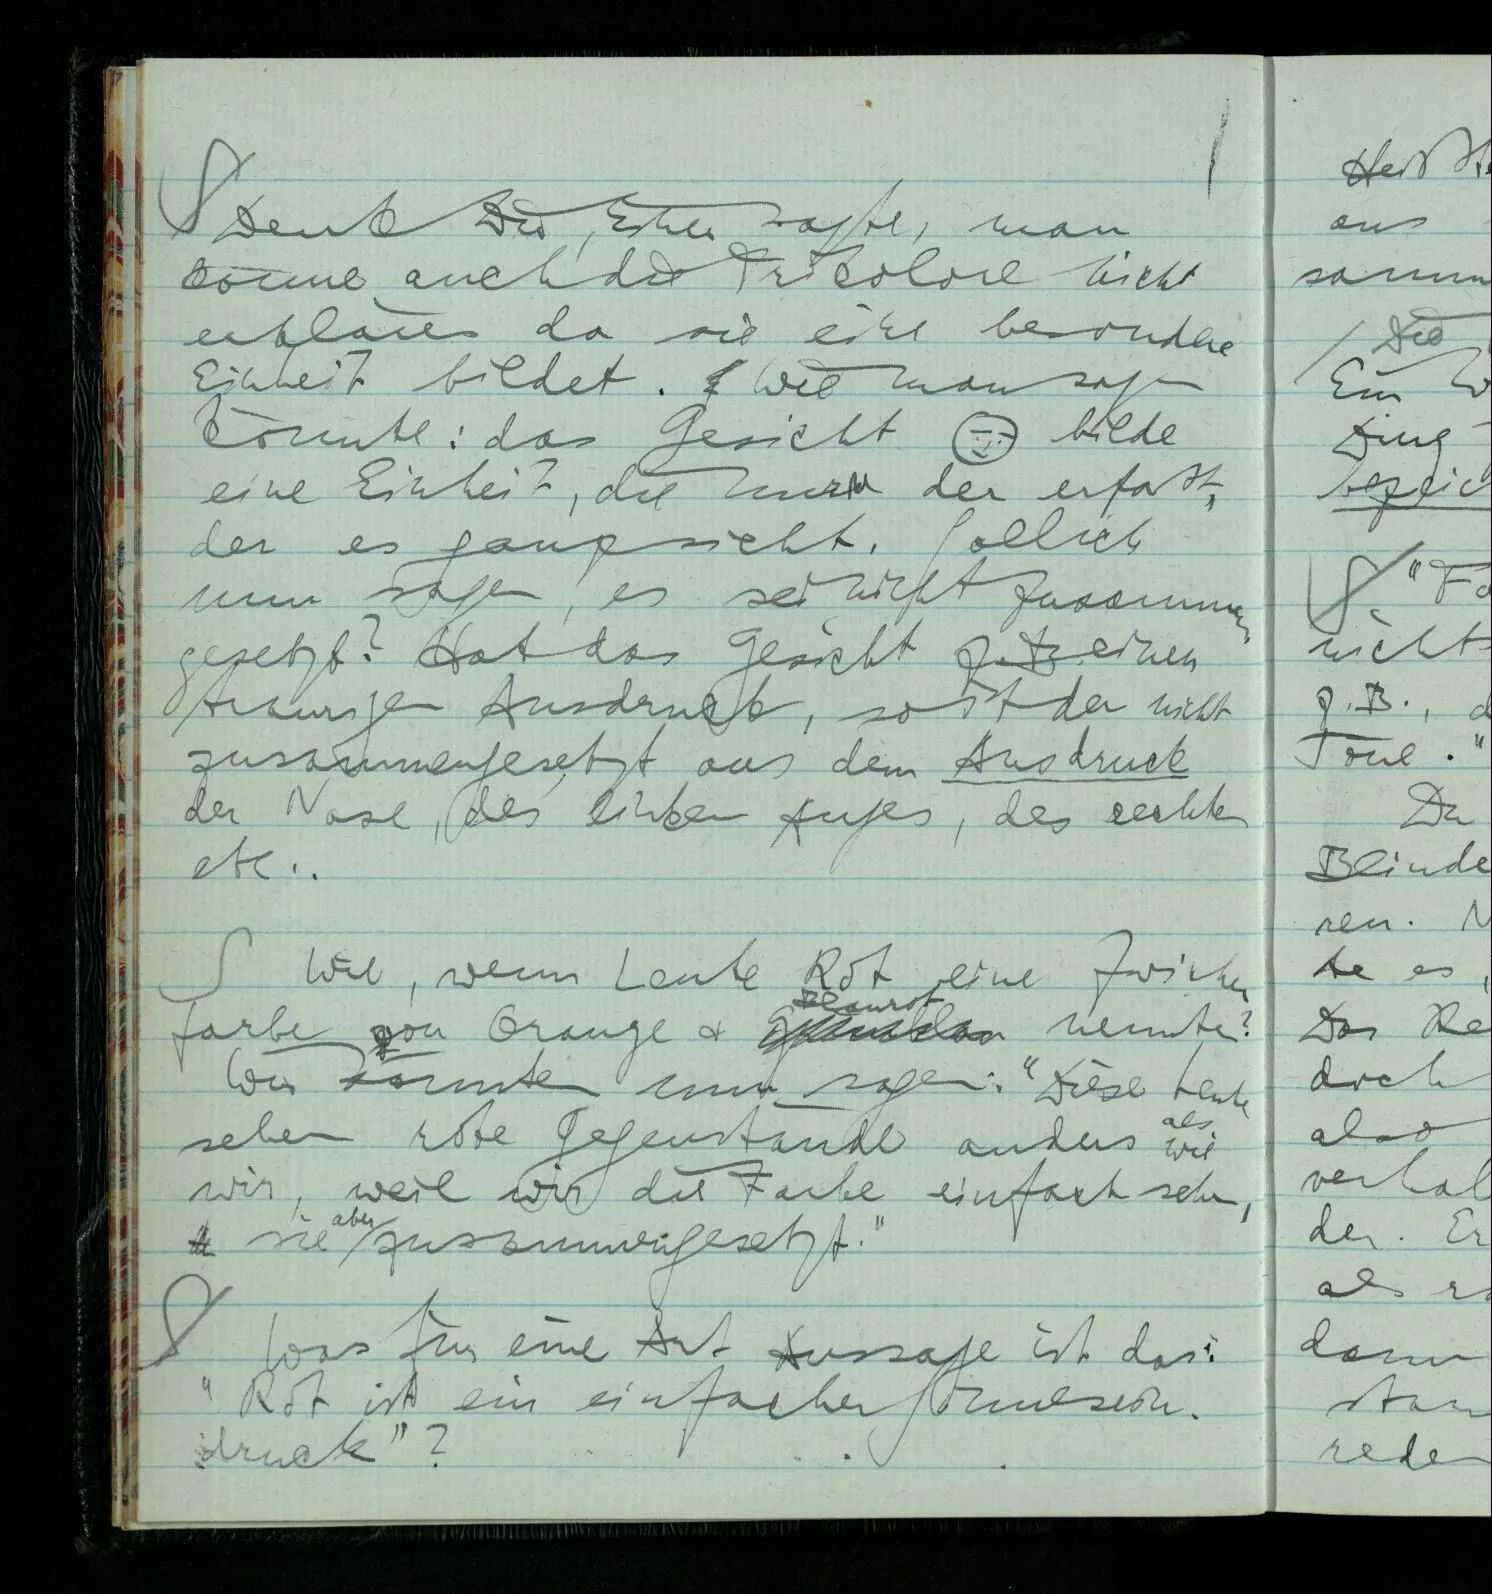 S Denk Dir, Einer sagte, man
könne auch die Tricolore nicht
erklären da sie eine besondere
Einheit bildet. Wie man sagen
könnte: das Gesicht bilde
eine Einheit, die nur der erfaßt,
der es ganz sieht. Soll ich
nun sagen, es sei nicht zusammen-
gesetzt? Hat das Gesicht einen
traurigen Ausdruck, so ist der nicht
zusammengesetzt aus dem Ausdruck
der Nase, des linken Auges, des rechten
etc..
S Wie, wenn Leute Rot eine Zwischen
farbe von Orange & Blaurot nennten?
Wir könnten nun sagen: "Diese Leute
sehen rote Gegenstände anders als wie
wir, weil wir die Farbe einfach sehen,
sie aber zusammengesetzt."
S Was für eine Art Aussage ist das:
"Rot ist ein einfacher Sinnesein-
druck"?
Heißt
aus
samm
/ Die
Ein W
Ding
bezeic
S "Fa
nichts
z.B., d
Töne."
Du
Blinde
ren. N
te es,
Das Re
doch
also
verhal
der. Er
als ro
dann
stan
reden